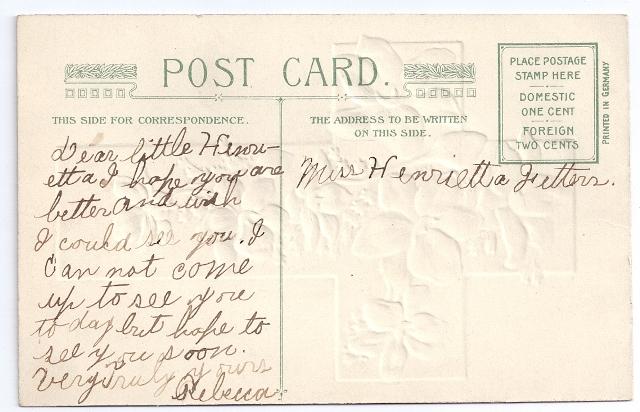 POST CARD.
THIS SIDE FOR CORRESPONDENCE.
THE ADDRESS TO BE WRITTEN
ON THIS SIDE.
PLACE POSTAGE
STAMP HERE
DOMESTIC
ONE CENT
FOREIGN
TWO CENTS
PRINTED IN GERMANY
Dear little Henri-
etta I hope you are
better and wish
I could see you. I
Can not come
up to see you
to day but hope to
see you soon.
Very Truly yours
Rebecca
Miss Henrietta